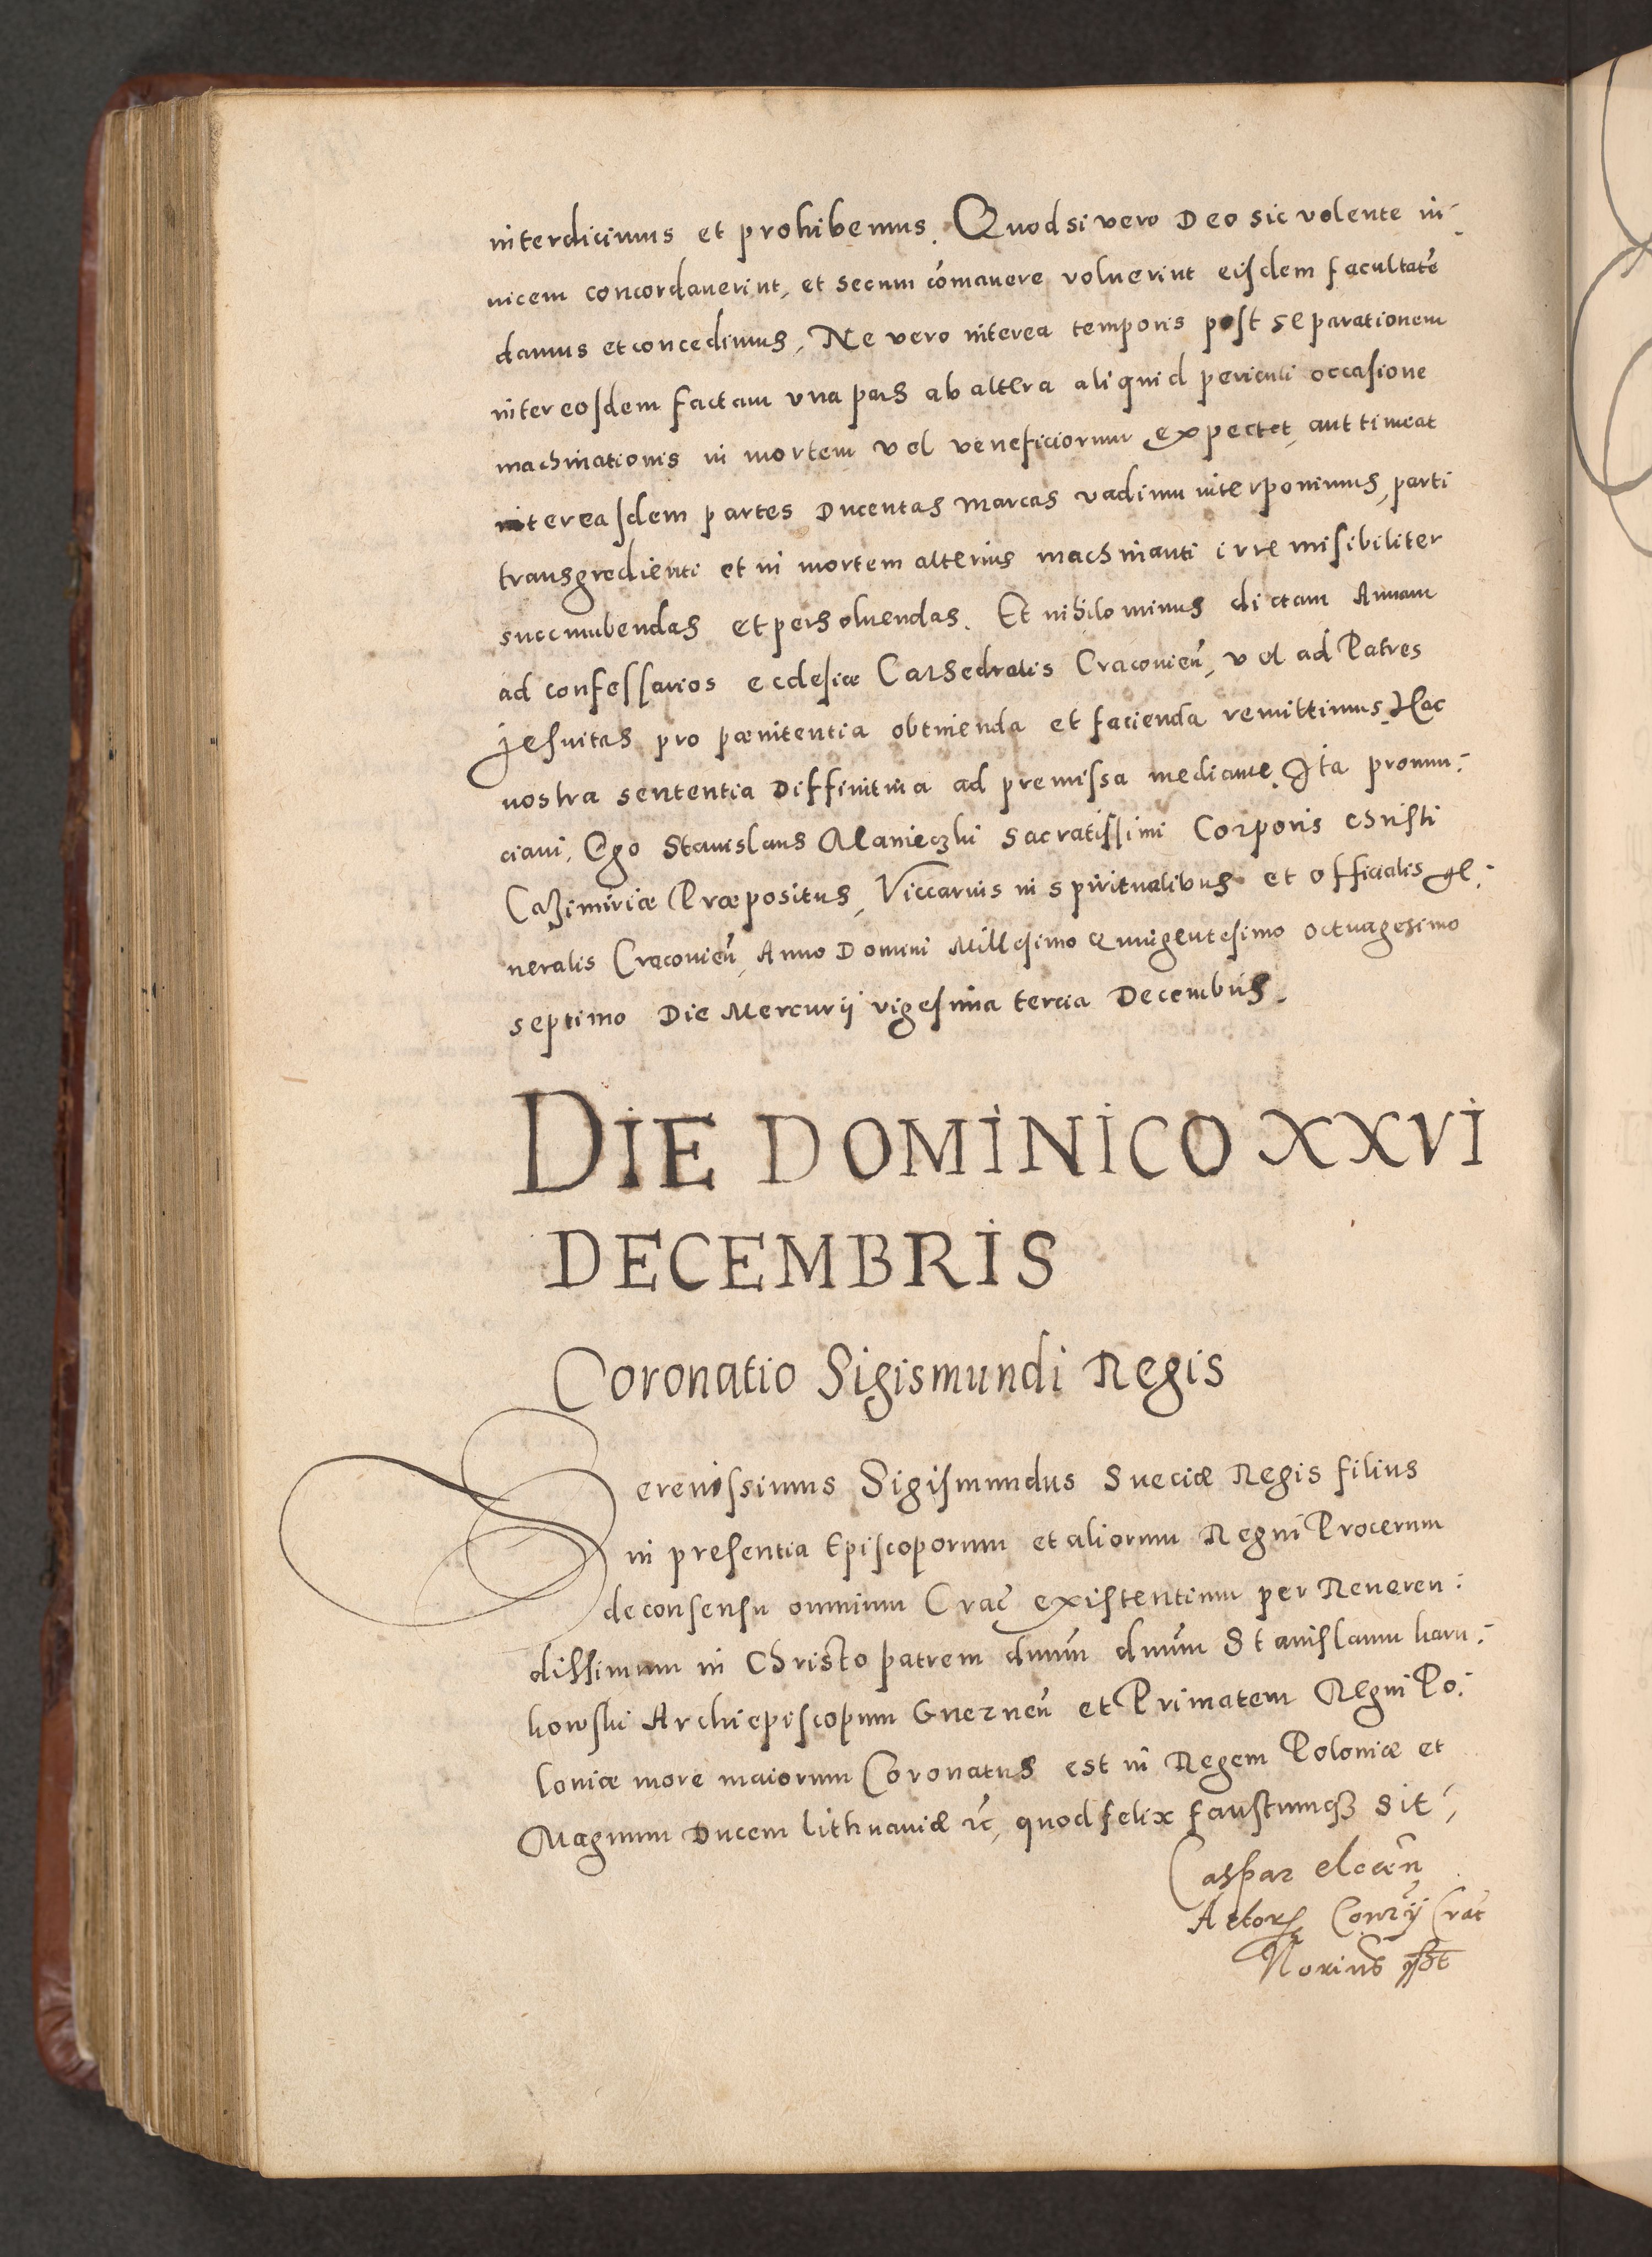 interdicimus et prohibemus. Quod si vero Deo sic volente in-
vicem concordaverint, et secum cõmanere voluerint eisdem facultatẽ
damus et concedimus, Ne vero interea temporis post separationem
inter eosdem factam una pars ab altera aliquid periculi occasione
machinationis in mortem vel veneficiorum expectet aut timeat
inter easdem partes Ducentas Marcas vadium interponimus, parti
transgredienti et in mortem alterius machinanti irremisibiliter
succumbendas et persoluendas. Et nihilominus dictam Annam
ad confessarios ecclesiæ Cathedralis Cracovieñ, vel ad Patres
Jesuitas pro pœnitentia obtinenda et facienda remittimus, Hac
nostra sententia Diffinitiva ad premissa mediante. Ita pronun:
ciavi, Ego Stanislaus Manieczki Sacratissimi Corporis christi
Cazimiriæ Præpositus, Viccarius in spiritualibus et officialis ge:
neralis Cracovieñ, Anno Domini Millesimo Quingentesimo octuagesimo
septimo Die Mercurij vigesima tercia Decembris.
DIE DOMINICO XXVI
DECEMBRIS
Coronatio Sigismundi Regis
Serenissimus Sigismundus Sueciæ Regis filius
in presentia Episcoporum et aliorum Regni Procerum
de consensu omnium Crac̃ existentium per Reueren:
dissimum in Christo patrem dnũm dnũm Stanislaum karn:
kowski Archiepiscopum Gnezneñ et Primatem Regni Po:
loniæ more maiorum Coronatus est in Regem Poloniæ et
Magnum Ducem Lithuaniæ ꝛc̃, quod felix faustumqꝫ sit,
Caspar
Actorꝝ Crac̃
Norius